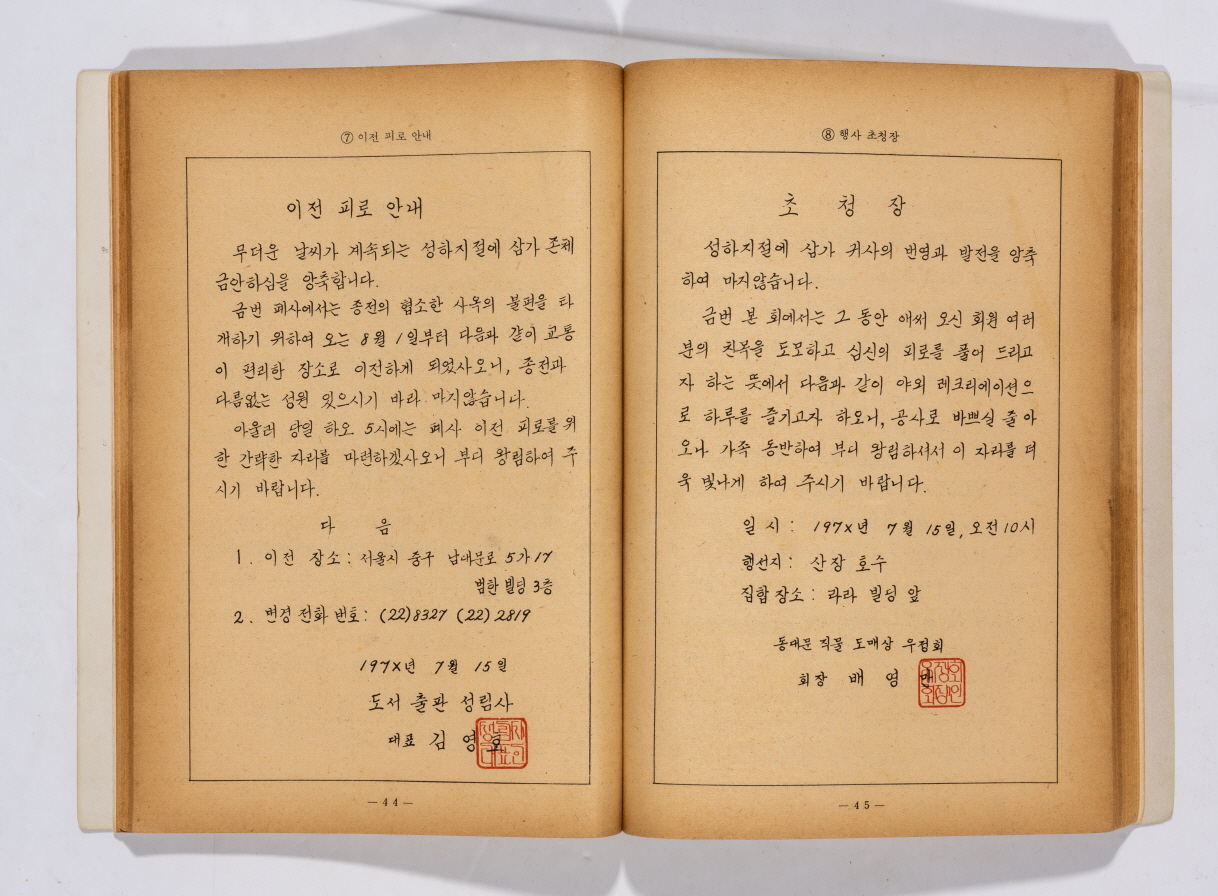 ⑦ 이전 피로 안내
이전 피로 안내
무더운 날씨가 계속되는 성하지절에 삼가 존체
금안하심을 앙축합니다.
금번 폐사에서는 종전의 협소한 사옥의 불편을 타
개하기 위하여 오는 8월 1일부터 다음과 같이 교통
이 편리한 장소로 이전하게 되었사오니, 종전과
다름없는 성원 있으시기 바라 마지않습니다.
아울러 당일 하오 5시에는 폐사 이전 피로를 위
한 간략한 자리를 마련하겠사오니 부디 왕림하여 주
시기 바랍니다.
다 음
1. 이전 장소 : 서울시 중구 남대문로 5가 17
범한 빌딩 3층
2. 변경 전화 번호 : (22)8327 (22)2819
197×년 7월 15일
도서 출판 성림사
대표 김 영 호
성림사
대표인
— 44 —
⑧ 행사 초청장
초 청 장
성하지절에 삼가 귀사의 번영과 발전을 앙축
하여 마지않습니다.
금번 본 회에서는 그 동안 애써 오신 회원 여러
분의 친목을 도모하고 심신의 피로를 풀어 드리고
자 하는 뜻에서 다음과 같이 야외 레크리에이션으
로 하루를 즐기고자 하오니, 공사로 바쁘실 줄 아
오나 가족 동반하여 부디 왕림하셔서 이 자리를 더
욱 빛나게 하여 주시기 바랍니다.
일 시 : 197×년 7월 15일, 오전 10시
행선지 : 산장 호수
집합 장소 : 라라 빌딩 앞
동대문 직물 도매상 우정회
회장 배 영 만
우정회
회장인
— 45 —